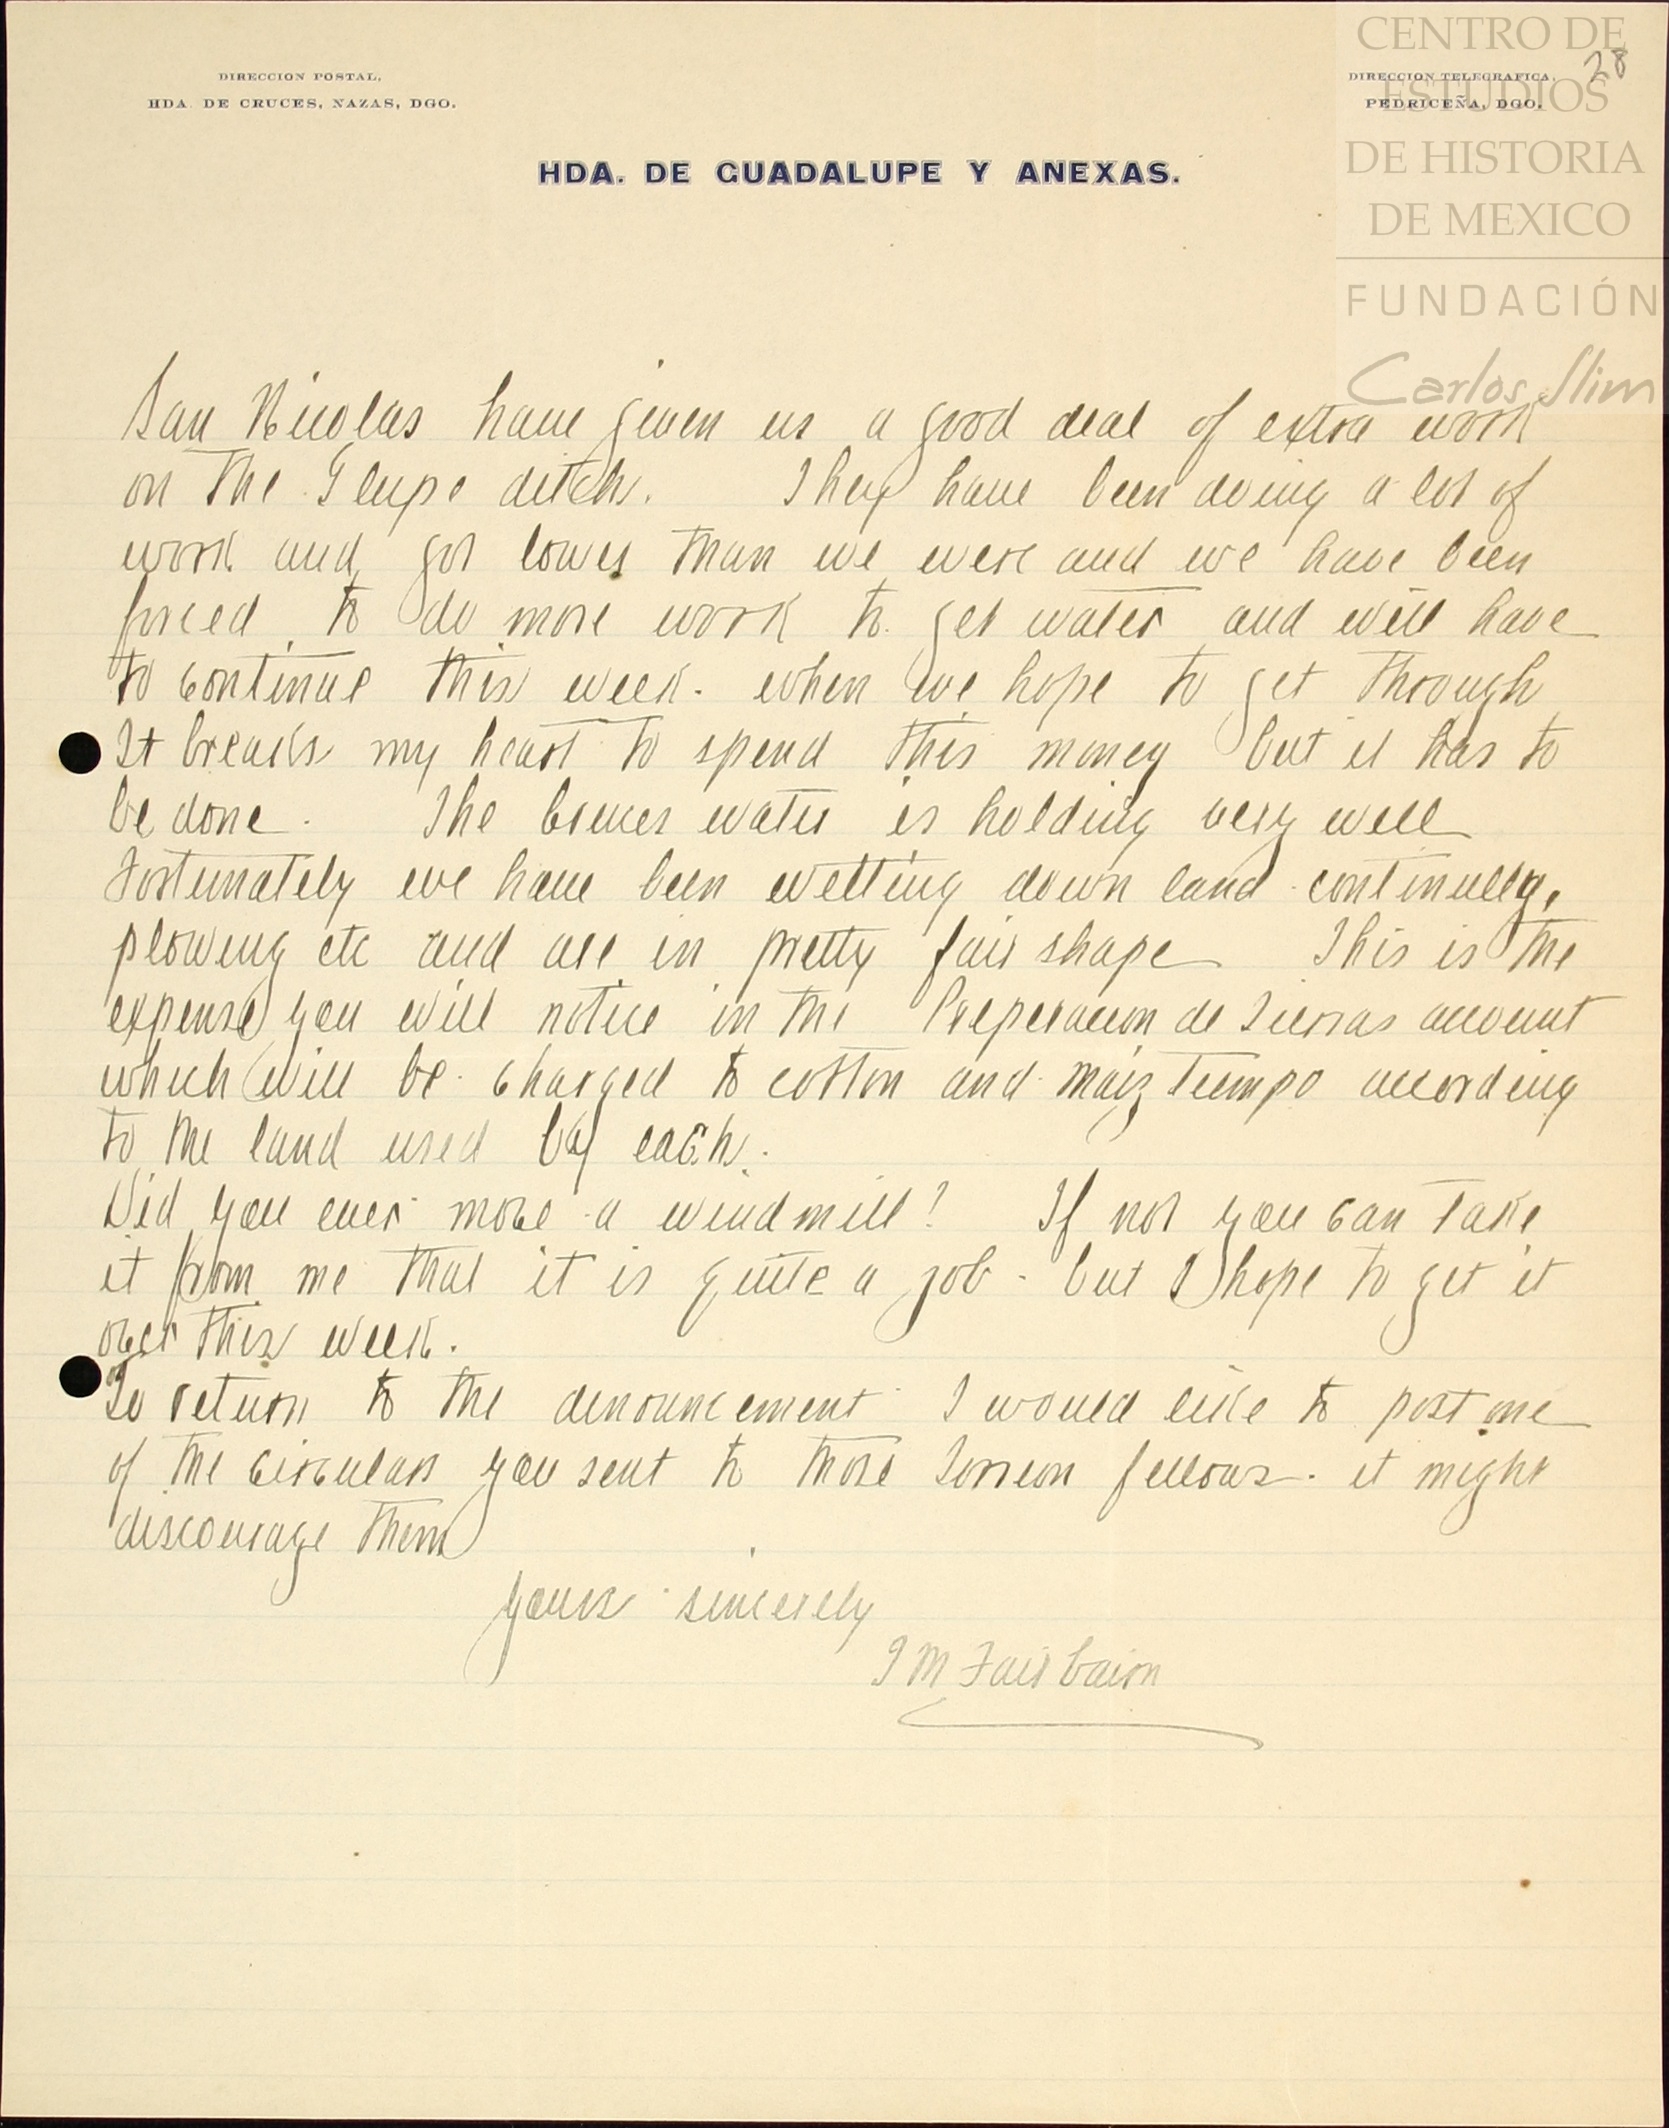 CENTRO DE
ESTUDIOS
DE HISTORIA
DE MEXICO
FUNDACIÓN
Carlos Slim
28
DIRECCION POSTAL,
HDA. DE CRUCES, NAZAS, DGO.
DIRECCION TELEGRAFICA,
PEDRICEÑA, DGO.
HDA. DE GUADALUPE Y ANEXAS.
San Nicolas have given us a good deal of extra work
on the Glupe ditch. They have been doing a lot of
work and got lower than we were and we have been
forced to do more work to get water and will have
to continue this week. when we hope to get through
It breaks my heart to spend this money but it has to
be done. The Cruces water is holding very well
Fortunately we have been wetting down land continully,
plowing etc and are in pretty fair shape This is the
expense you will notice in the Preperacion de Tierras account
which will be charged to cotton and maiz Tiempo according
to the land used by each.
Did you ever move a windmill? If not you can take
it from me that it is quite a job - but I hope to get it
over this week.
To return to the denouncement I would like to post one
of the circulars you sent to those Torreon fellows. it might
discourage them
Yours sincerely
J M Fairbairn